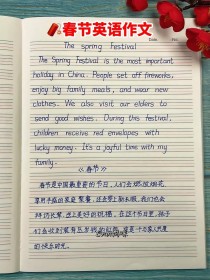 春节英语作文
Date.
The spring festival
The Spring festival is the most important
holiday in China. People set off fireworks,
enjoy big family meals, and wear new
clothes. We also visit our elders to
send good wishes. During this festival,
children receive red envelopes with
lucky money. It's a joyful time with my
family.
《春节》
春节是中国最重要的节日,人们会燃放烟花,
享用丰盛的家庭聚餐,还会穿上新衣服,我们也会
拜访长辈,送上美好的祝福,在这个节日里,孩子
们会收到装有压岁钱的红包,
的快乐时光。